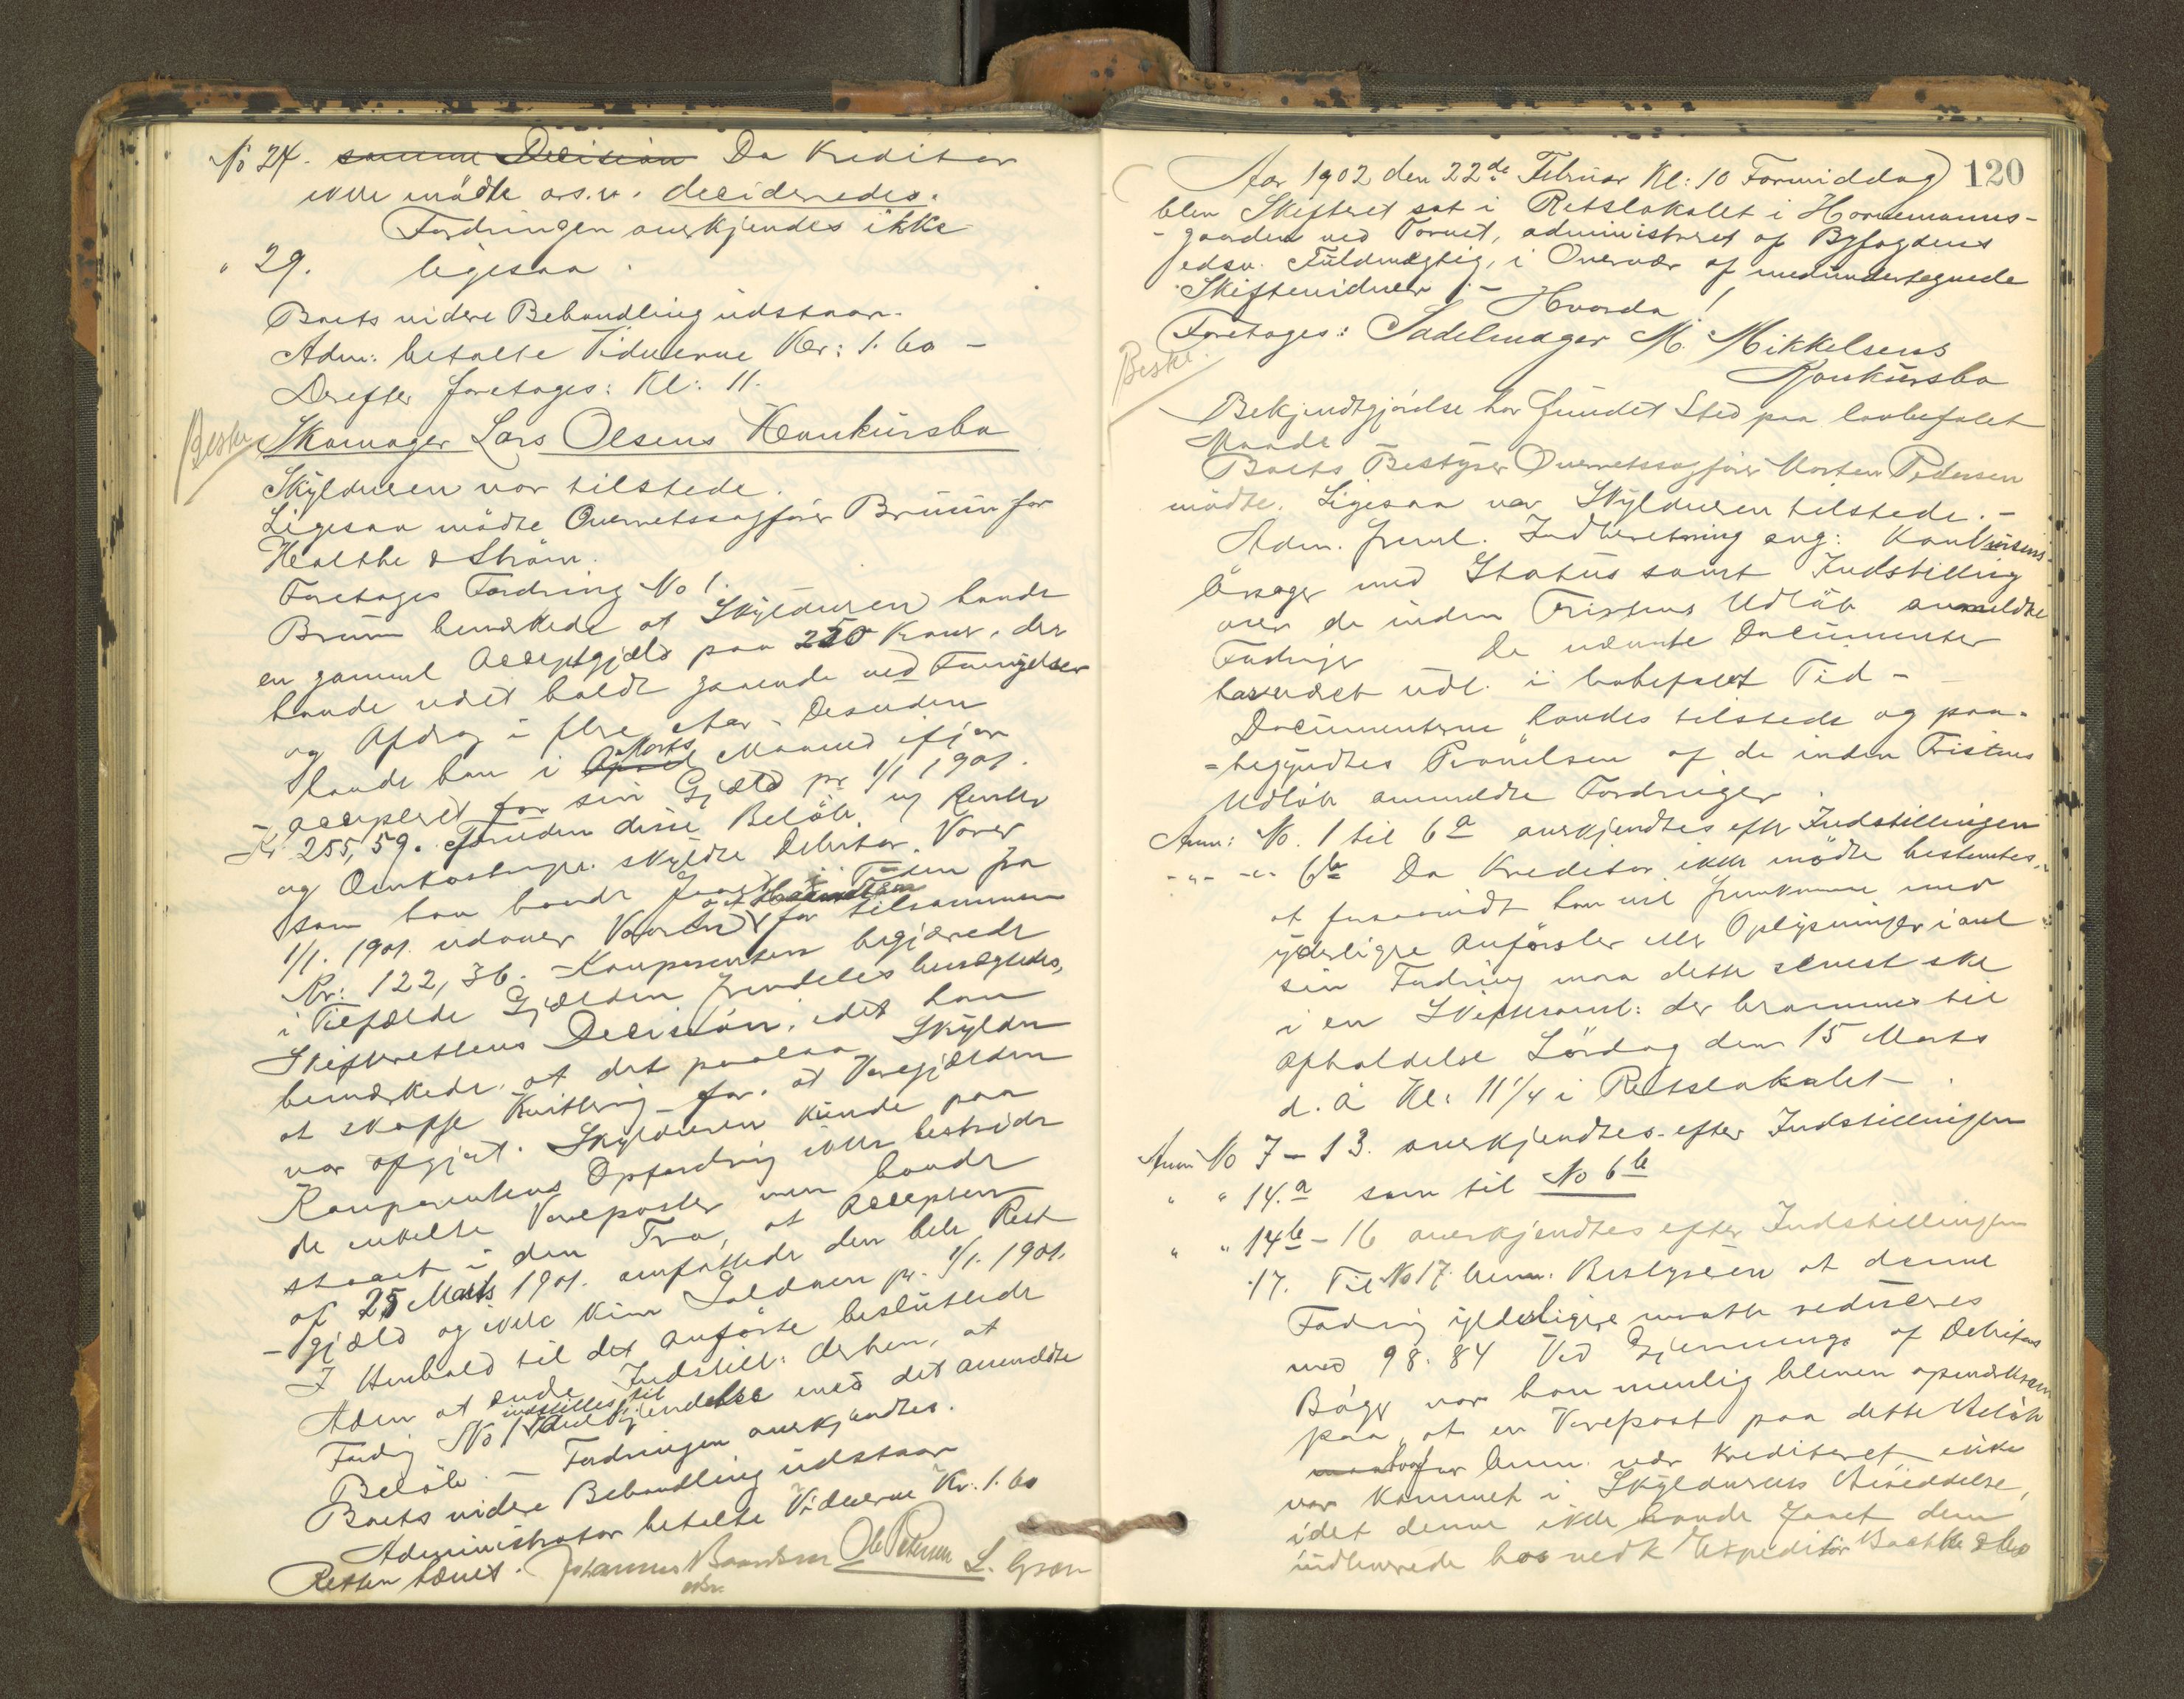 No 24. samme Decision Da Kreditor
ikke mödte o.s.v. decideredes.
Fordringen anerkjendes ikke
" 29. ligesaa.
Boets videre Behandling udstaar.
Adm: betalte Vidnerne Kr: 1.60 -
Derefter foretages: Kl: 11.
Skomager Lars Olsens Konkursbo
Skyldneren var tilstede.
Ligesaa mödte Overretssagförer Bruun for
& Ström.
Foretages Fordring No 1.
Bruun bemærkede at Skyldneren havde
en gammel Acceptgjæld paa 250 Kroner, der
havde været holdt gaaende ved Fornyelser
og Afdrag i flere Aar. Desuden
havde han i April Marts Maaned ifjor
accepteret for sin Gjæld pr 1/1 1901.
Kr 255,59. Foruden disse Belöb, og Renter
og Omkostninger skyldte Debitor Varer
som han havde faaet i Tiden fra
1/1. 1901. udover Vaaren for tilsammen
Kr: 122,36. - Komparenten begjærede
i Tilfælde Gjælden fremdeles benægtedes,
Skifterettens Decision, idet han
bemærkede, at det paalaa Skyldn
at skaffe Kvittering for, at Varegjælden
var opgjort. Skyldneren kunde paa
Komparentens Opfordring ikke bestride
de enkelte Vareposter men havde
staaet i den Tro, at Accepten
af 25 Marts 1901. omfattede den hele Rest
- gjæld og ikke kun Saldoen pr. 1/1. 1901.
I Henhold til det anförte besluttede
Adm at ændre Indstill: derhen, at
Fordring No 1 indstilles til Anerkjendelse med det anmeldte
Belöb. - Fordringen anerkjendtes.
Boets videre Behandling udstaar
Administrator betalte Vidnerne Kr. 1.60
Retten hævet. Johannes Ole Petersen L.
120
Aar 1902 den 22de Februar Kl: 10 Formiddag
blev Skifteret sat i Retslokalet i Hornemanns-
- gaarden ved Torvet, administreret af Byfogdens
edsv. Fuldmægtig, i Overvær af medundertegnede
Skiftevidner. -
Hvorda!
Foretages: Sadelmager M. Mikkelsens
Konkursbo
Bekjendtgjörelse har fundet Sted paa lovbefalet
Maade
Boets Bestyrer Overretssagförer Morten Pedersen
mödte. Ligesaa var Skyldneren tilstede. -
Adm. freml. Indberetning ang: Konkursens
Årsager med Status samt Indstilling
over de inden Fristens Udlöb anmeldte
Fordringer De nævnte Documenter
har været udl. i lovbefalet Tid -
Documenterne havdes tilstede og paa-
= begyndtes Prövelsen af de inden Fristens
Udlöb anmeldte Fordringer.
Anm: No. 1 til 6a anerkjendtes efter Indstillingen
- " - " - 6b Da Kreditor ikke mödte bestemtes,
at forsaavidt han vil fremkomme med
yderligere Anförsler eller Oplysninger i anl
sin Fordring maa dette senest ske
i en Skiftesaml: der berammes til
Afholdelse Lördag den 15 Marts
d. å Kl: 11 1/4 i Retslokalet.
Anm No 7 - 13. anerkjendtes efter Indstillingen
" " 14.a som til No 6b
" " 14b - 16 anerkjendtes efter Indstillingen
17. Til No 17 bem. Bestyreren at denne
Fordring yderligere maatte reduceres
med 98.84 Ved Gjennemgo af Debitors
Böger var han nemlig bleven opmærksom
paa, at en Varepost paa dette Belöb
hvorfor Anm. var krediteret ikke
var kommet i Skyldnerens Besiddelse,
idet denne ikke havde faaet dem
udleverede hos vedk Expeditör